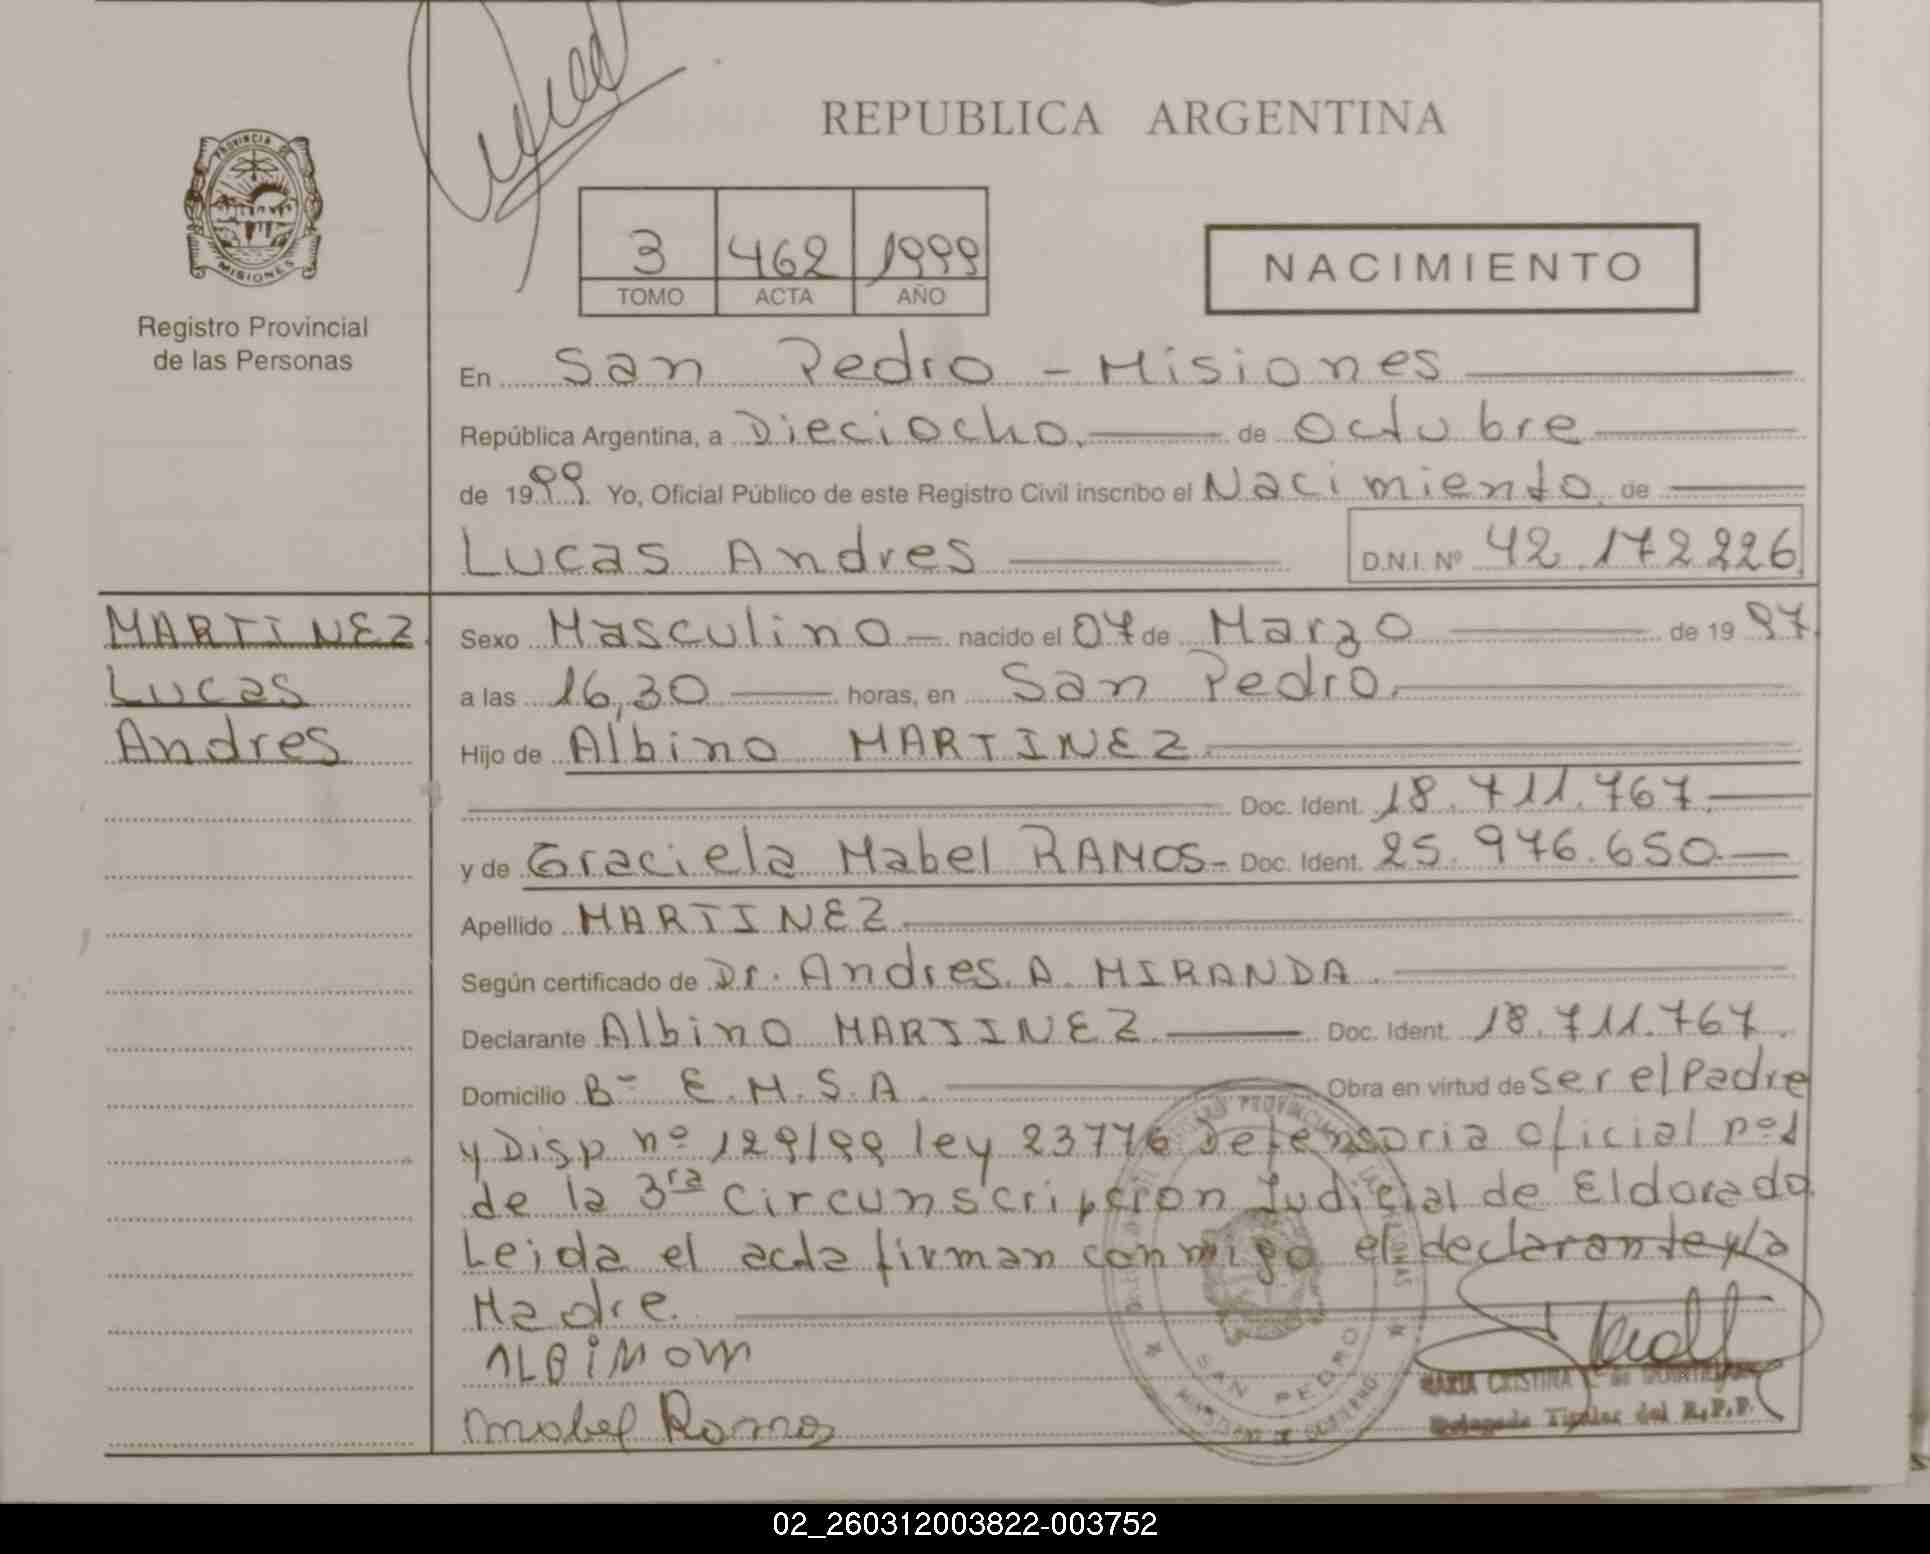 REPUBLICA ARGENTINA
PROVINCIA DE
MISIONES
Registro Provincial
de las Personas
3 462 1999
TOMO ACTA AÑO
NACIMIENTO
En San Pedro - Misiones
República Argentina, a Dieciocho. de Octubre
de 1999. Yo, Oficial Público de este Registro Civil inscribo el Nacimiento. de
Lucas Andres D.N.I. Nº 42.172226
MARTINEZ.
Lucas
Andres
Sexo Masculino nacido el 07 de Marzo de 1997.
a las 16,30 horas, en San Pedro.
Hijo de Albino MARTINEZ
Doc. Ident. 18.711.767.
y de Graciela Mabel RAMOS- Doc. Ident. 25.976.650.
Apellido MARTINEZ
Según certificado de Dr. Andres. A. MIRANDA.
Declarante Albino MARTINEZ. Doc. Ident. 18.711.767.
Domicilio Bº E.M.S.A. Obra en virtud de ser el Padre
y Disp nº 129/99 ley 23776 Defensoria oficial nº1
de la 3ra circunscripcion Judicial de Eldorado
Leida el acta firman conmigo el declarante y la
Madre.
ALBINOM
mabel Ramos
SAN PEDRO
MINISTERIO DE GOBIERNO
MARIA CRISTINA
Delegada Titular del R.P.P.
02_260312003822-003752